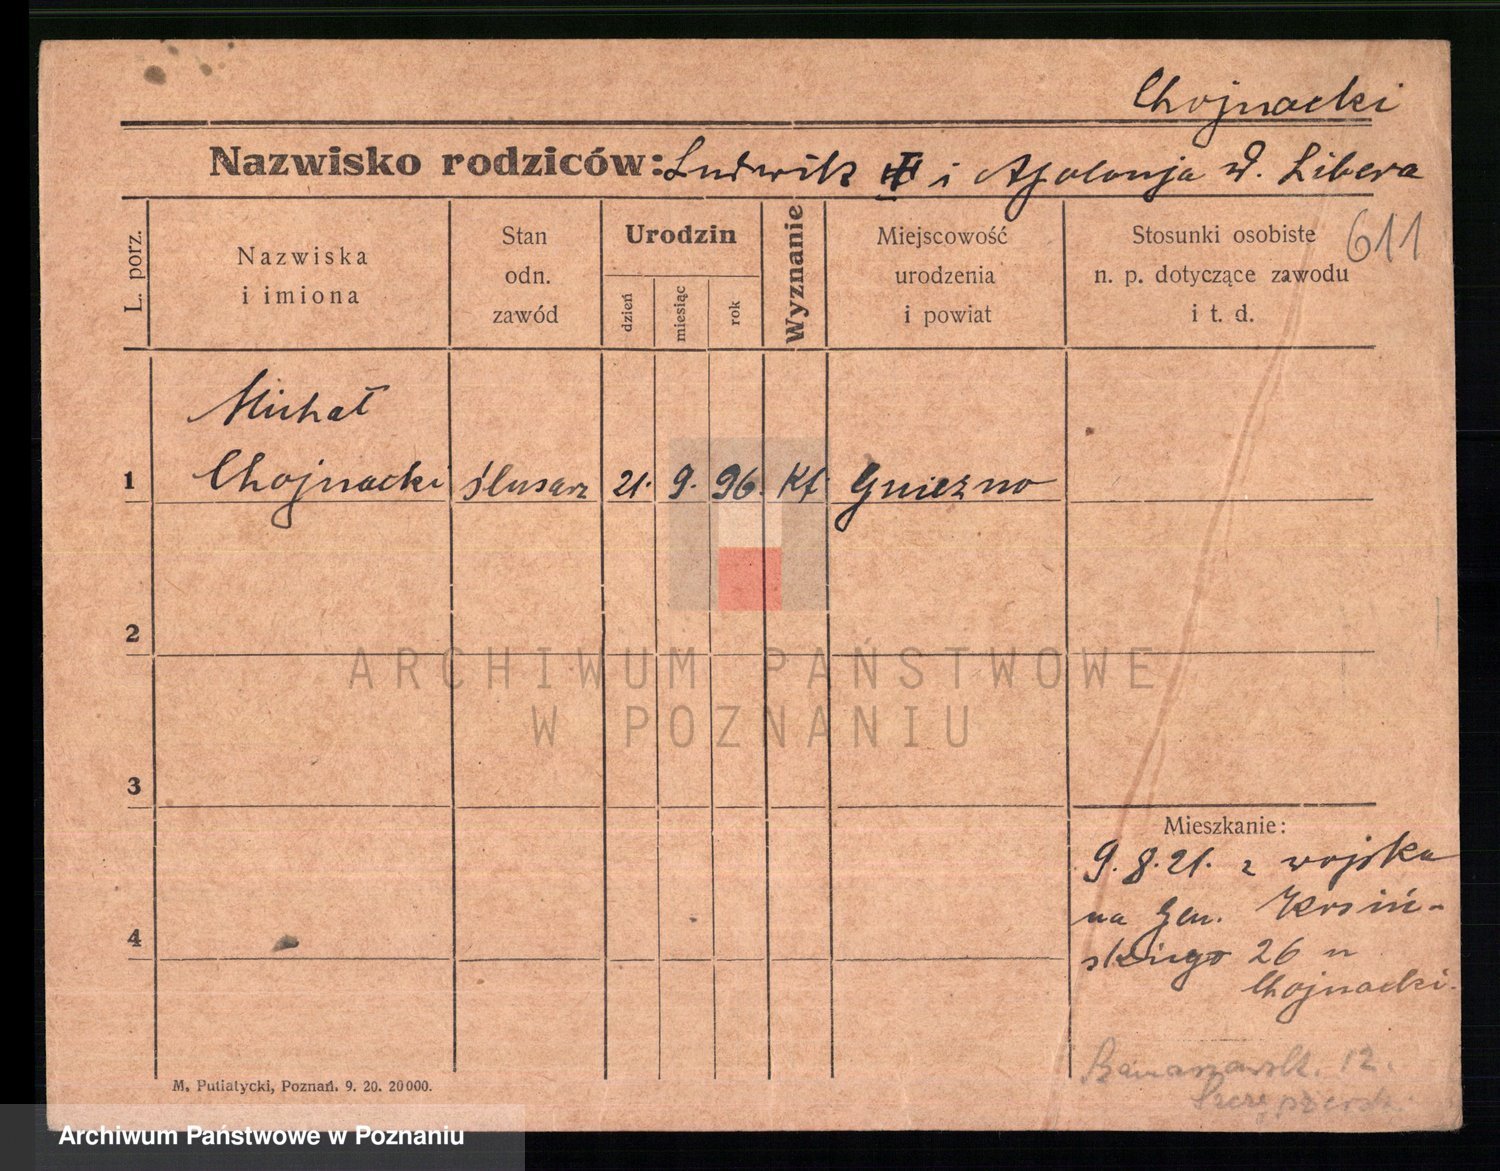 Chojnacki
Nazwisko rodziców: Ludwik i Apolonja d. Libera
611
L. porz.
Nazwiska
i imiona
Stan
odn.
zawód
Urodzin
dzień
miesiąc
rok
Wyznanie
Miejscowość
urodzenia
i powiat
Stosunki osobiste
n. p. dotyczące zawodu
i t. d.
Michał
1 Chojnacki ślusarz 21. 9. 96. Kt. Gniezno
2
ARCHIWUM PAŃSTWOWE
W POZNANIU
3
4
Mieszkanie:
9.8.21. z wojska
na Gen. Kosiń-
skiego 26 u
Chojnacki.
12.
M. Putiatycki, Poznań. 9. 20. 20000.
Archiwum Państwowe w Poznaniu